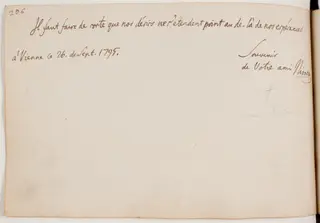 Il faut faire de sorte que nos désirs ne s'étendent point au de là de nos espérances
à Vienne le 26. de Sept. 1795.
Souvenir
de Votre ami